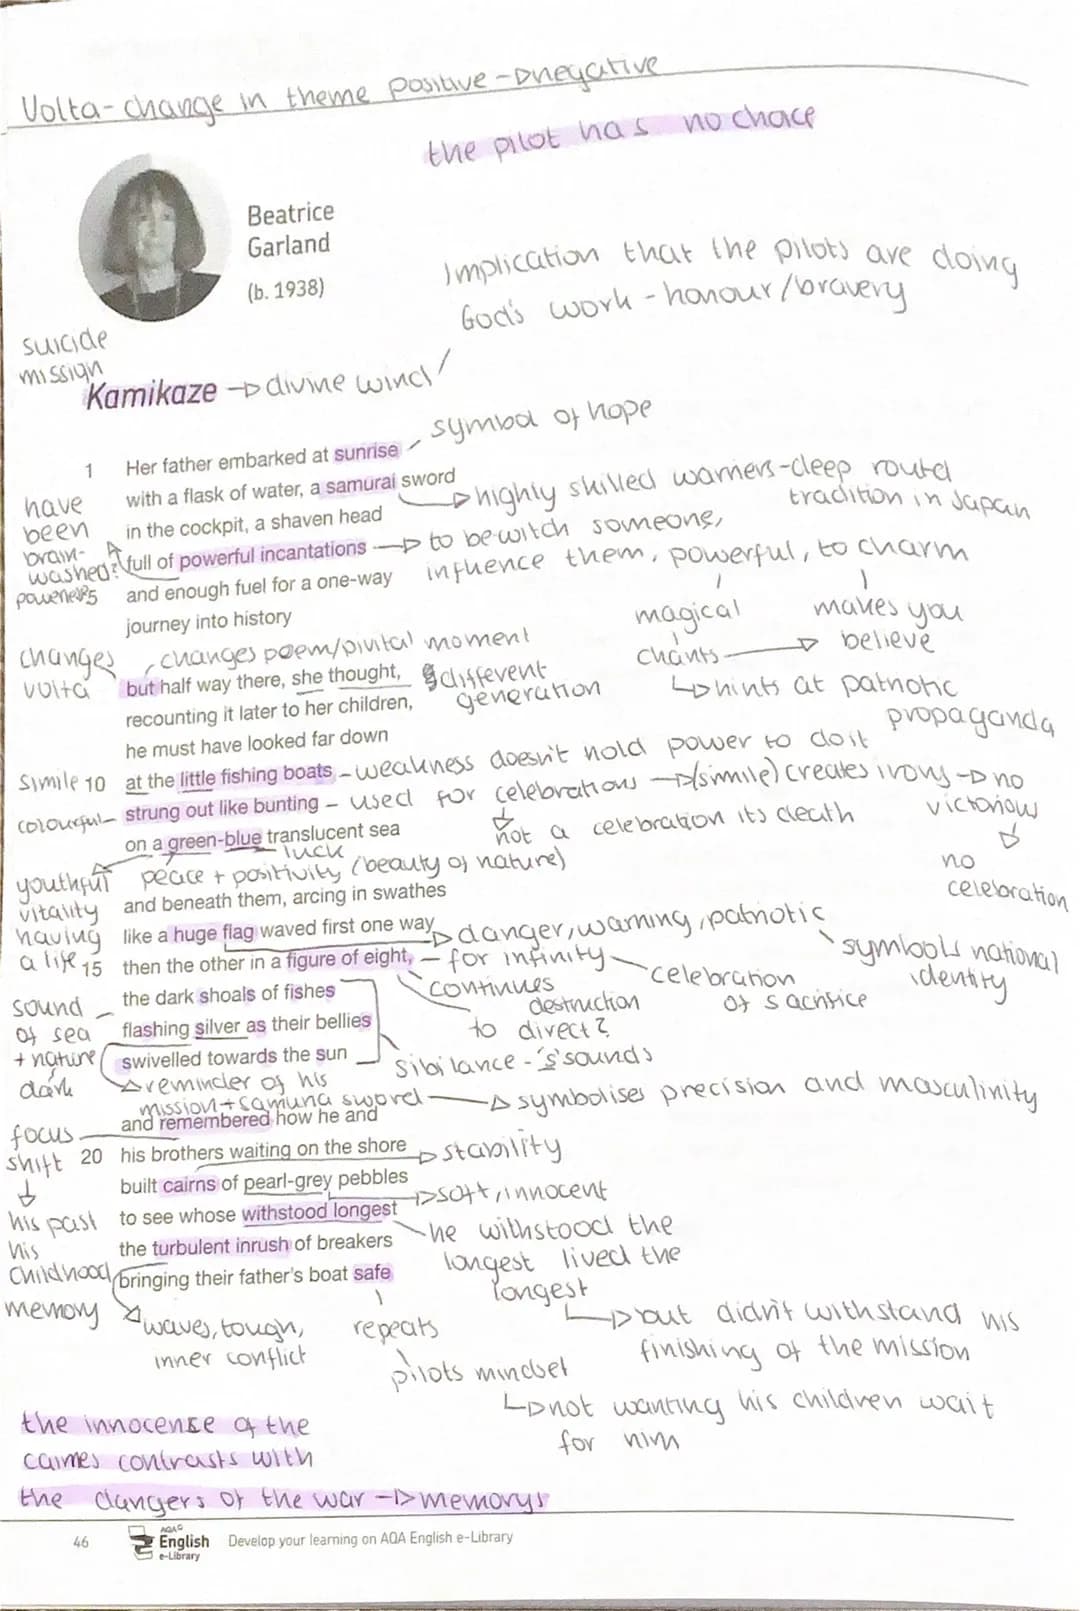 Volta - change in theme positive -> negative
the pilot has no choice
Beatrice
Garland
(b. 1938)
Implication that the pilots are doing
God's work - honour/bravery
suicide
mission
Kamikaze -> divine wind
symbol of hope
1 Her father embarked at sunrise
with a flask of water, a samurai sword
highly skilled warriers - deep routed
tradition in Japan
have
been
brain-
washed?
in the cockpit, a shaven head
full of powerful incantations -> to bewitch someone,
influence them, powerful, to charm
5 and enough fuel for a one-way
journey into history
magical
chants -> makes you
believe
hints at patriotic
propaganda
changes
volta
changes poem/pivital moment
but half way there, she thought,
different
generation
recounting it later to her children,
he must have looked far down
simile 10 at the little fishing boats - weakness doesn't hold power to do it
colourful - strung out like bunting - used for celebrations -> (simile) creates irony -> no
victorious
no
celebration
not a celebration its death
on a green-blue translucent sea
luck
peace + positivity (beauty of nature)
youthful
vitality
having
a life
and beneath them, arcing in swathes
like a huge flag waved first one way
danger, warning, patriotic
symbols national
identity
15 then the other in a figure of eight, - for infinity
celebration
of sacrifice
continues
destruction
to direct?
the dark shoals of fishes
flashing silver as their bellies
swivelled towards the sun
sibilance - 's' sounds
sound
of sea
+ nature
dark
reminder of his
mission + samurai sword -> symbolises precision and masculinity
and remembered how he and
focus
shift
his past
his
childhood
memory
20 his brothers waiting on the shore -> stability
built cairns of pearl-grey pebbles
soft, innocent
to see whose withstood longest
he withstood the
longest lived the
longest
but didn't withstand his
finishing of the mission
the turbulent inrush of breakers
bringing their father's boat safe
waves, tough,
inner conflict
repeats
pilots mindset
not wanting his children wait
for him
the innocense of the
cairnes contrasts with
the dangers of the war -> memorys
46
AQA
English
e-Library
Develop your learning on AQA English e-Library